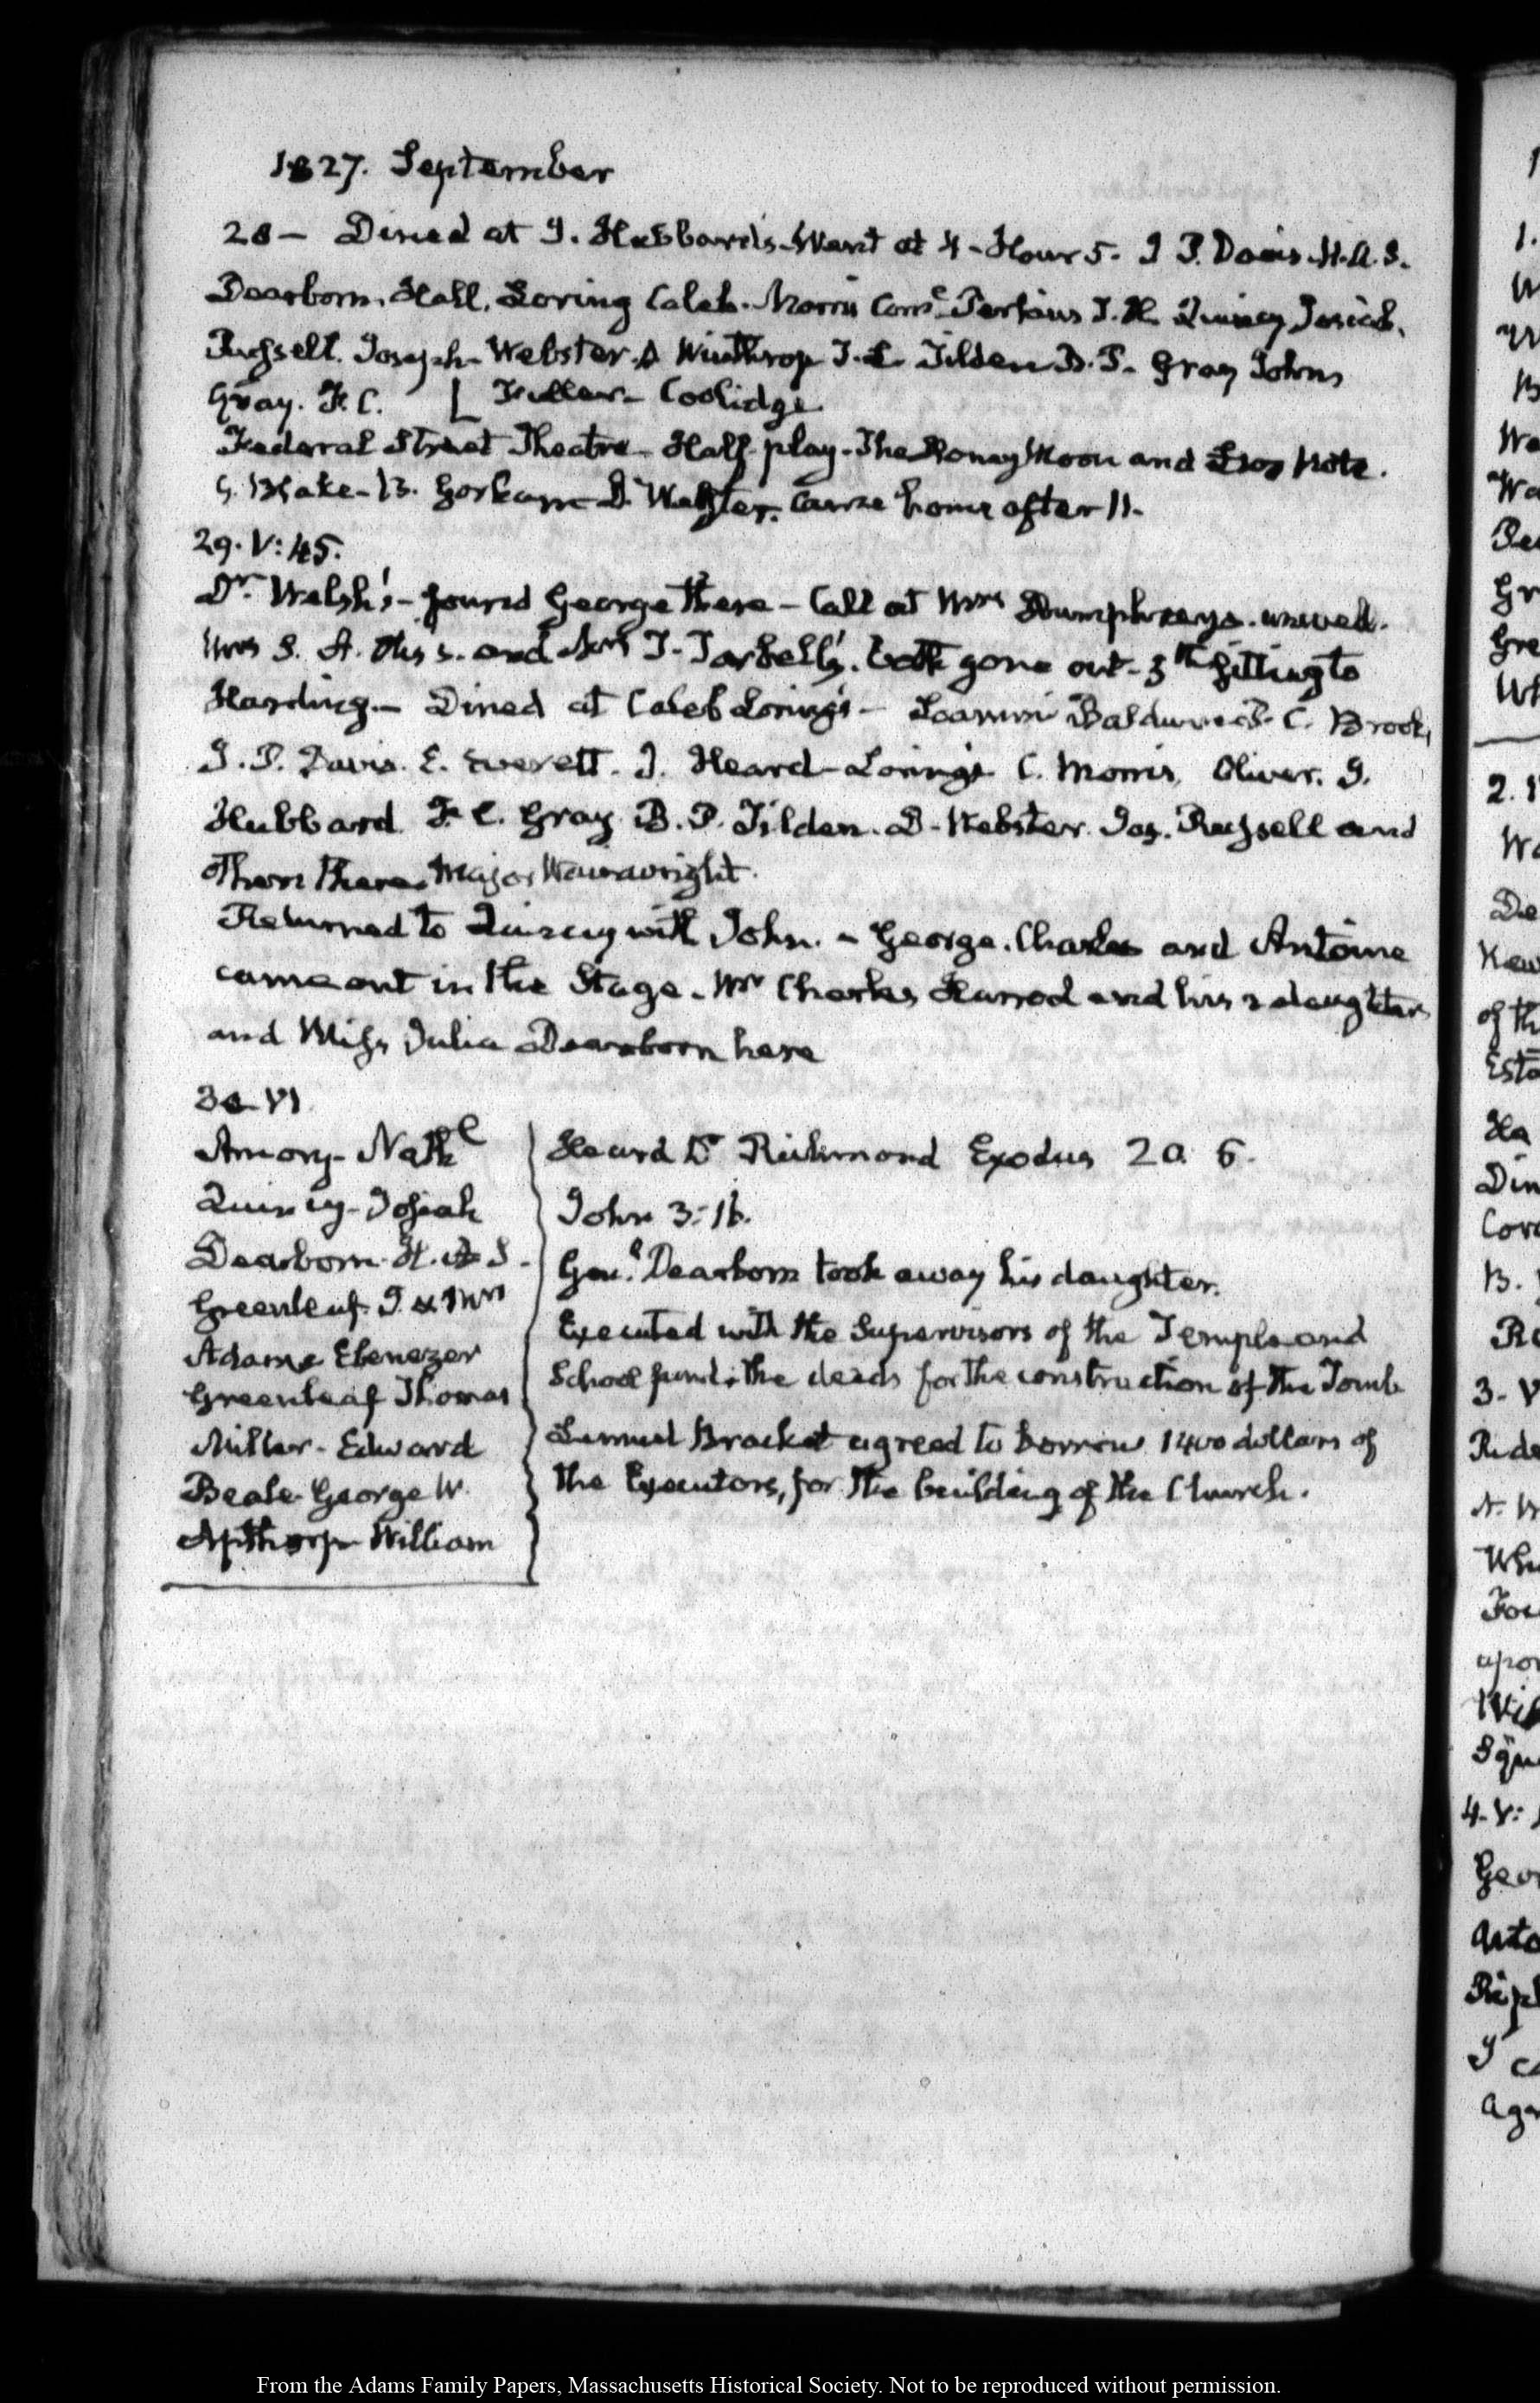 1827. September
28— Dined at J. Hubbard's. Went at 4 - Hour 5. J P. Davis. H. A. S.
Dearborn. Hall. Loring Caleb. Morris Com.e Perkins T. H. Quincy Josiah.
Russell. Joseph - Webster. D Winthrop T. L. Tilden B. P. Gray John
Gray. F. C. [ Fuller - Coolidge
Federal Street Theatre - Half play - The Honey Moon and Note.
G. Blake - B. Gorham D. Webster. Came home after 11.
29. V:45.
Dr. Welsh's - found George there - Call at Mrs Humphreys. unwell.
Mrs S. A. Otis's. and Mrs T. Tarbell's. both gone out - 3th sitting to
Harding - Dined at Caleb Loring's - Loammi Baldwin P. C. Brooks
J. P. Davis. E. Everett. J. Heard - Lorings C. Morris, Oliver. J.
Hubbard. F. C. Gray. B. P. Tilden. D. Webster. Jos. Russell and
others there. Major Wainwright.
Returned to Quincy with John. - George. Charles and Antoine
came out in the Stage. Mr Charles Harrod and his 2 daughters
and Miss Julia Dearborn here
30. VI
Amory - Nathl
Quincy - Josiah
Dearborn. H. A. S.
Greenleaf. J. & Mrs
Adams Ebenezer
Greenleaf Thomas
Miller - Edward
Beale George W.
Apthorp William
Heard Dr Richmond Exodus 20. 6.
John 3:16.
Gen.l Dearborn took away his daughter.
Executed with the Supervisors of the Temple and
School fund, the deeds for the construction of the Tomb
Lemuel Bracket agreed to borrow 1400 dollars of
the Executors, for the building of the Church.
From the Adams Family Papers, Massachusetts Historical Society. Not to be reproduced without permission.